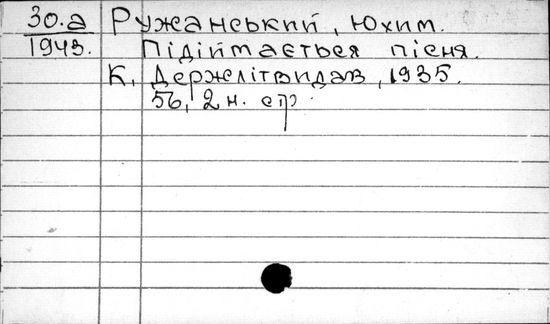 30.а Ружанський, Юхим.
1943. Підіймається пісня.
К., Держлітвидав, 1935.
56, 2 н. стр.